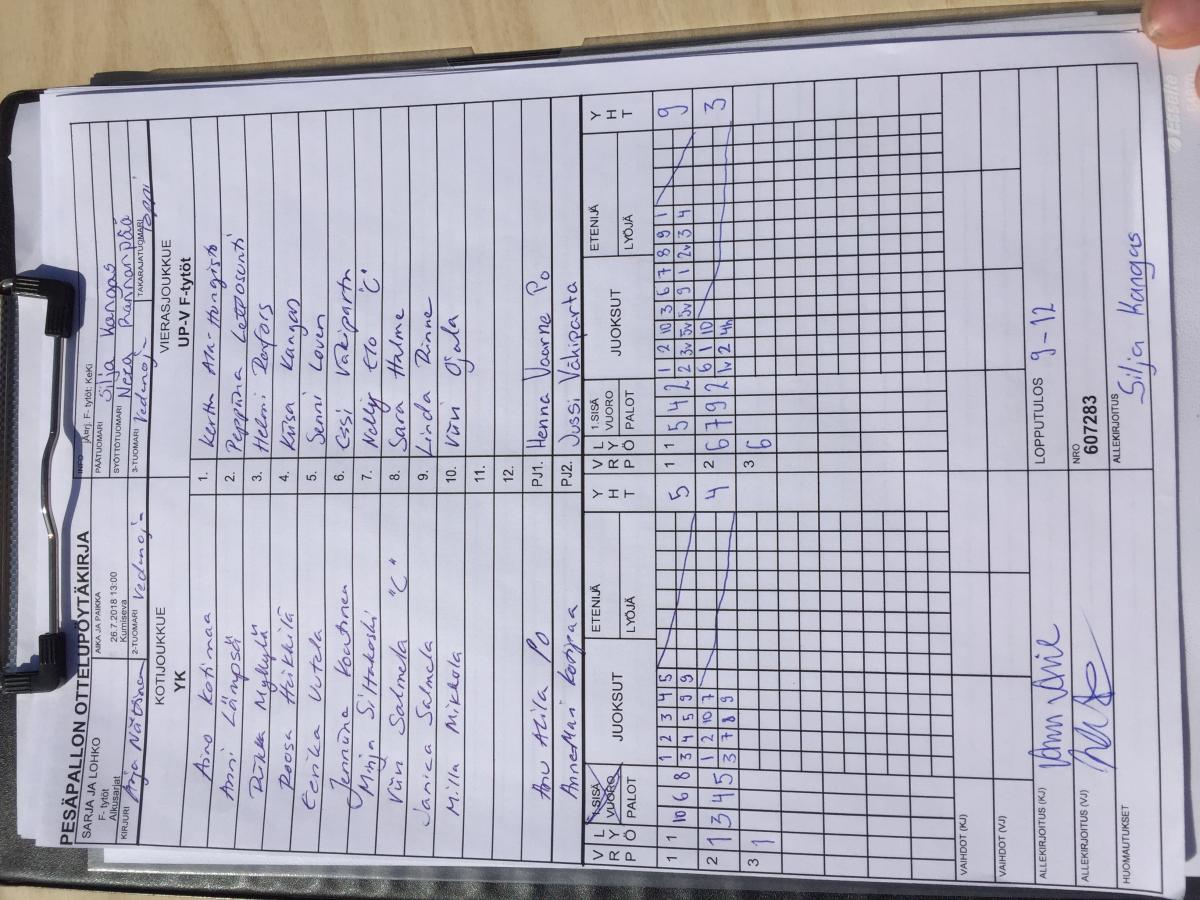 PESÄPALLON OTTELUPÖYTÄKIRJA
SARJA JA LOHKO
F- tytöt
Alkusarjat
AIKA JA PAIKKA
26.7.2018 13:00
Kumiseva
INFO
järj. F- tytöt: KeKi
PÄÄTUOMARI Silja Kangas
SYÖTTÖTUOMARI Neea
KIRJURI Arja Nättinen
2-TUOMARI
3-TUOMARI
TAKARAJATUOMARI
KOTIJOUKKUE
YK
VIERASJOUKKUE
UP-V F-tytöt
Aino Kotimaa 1. Kerttu
Anni Lämpsä 2. Peppiina
3. Helmi
Roosa Heikkilä 4. Kiisa Kangas
Eerika 5. Senni Loven
Jemina 6. Essi Väkiparta
Minja 7. Nelly "C"
Viivi Salmela "C" 8. Saara Halme
Janica Salmela 9. Linda Rinne
Milla Mikkola 10. Viivi Ojala
11.
12.
Anu PO PJ1. Henna Vaarne Po
AnneMari PJ2. Jussi Väkiparta
V P L
R Ö Y
1.SISÄ
VUORO
PALOT
JUOKSUT
ETENIJÄ
LYÖJÄ
Y H T
V P L
R Ö Y
1.SISÄ
VUORO
PALOT
JUOKSUT
ETENIJÄ
LYÖJÄ
Y H T
1 1 10 6 8 1 2 3 4 5 5
3 4 5 9 9
2 1 3 4 5 1 2 10 7 4
3 7 8 9
3 1
1 1 5 4 2 1 2 10 3 6 7 8 9 1 9
2 3v 5v 5v 9 1 2v 3 4
2 6 7 9 2 6 1 10 3
1v 2 4h
3 6
VAIHDOT (KJ)
VAIHDOT (VJ)
ALLEKIRJOITUS (KJ)
LOPPUTULOS 9-12
ALLEKIRJOITUS (VJ)
NRO
607283
HUOMAUTUKSET
ALLEKIRJOITUS
Silja Kangas